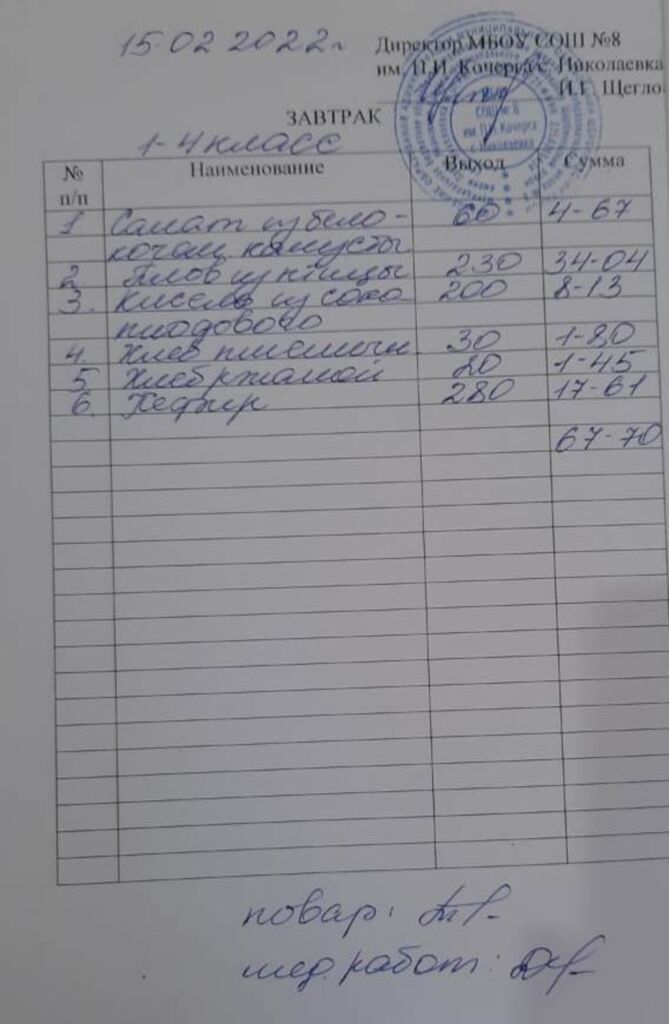 15.02 2022г
Директор МБОУ СОШ №8
им. П.И. Кочерга с. Николаевка
И.Г. Щегло
ЗАВТРАК
1-4 класс
№ п/п Наименование Выход Сумма
1 Салат из бело- 60 4-67
кочан. капусты
2. Плов из птицы 230 34-04
3. Кисель из сока 200 8-13
плодового
4. Хлеб пшеничн. 30 1-80
5 Хлеб ржаной 20 1-45
6. Кефир 280 17-61
67-70
повар:
мед. работ:
СОШ № 8
им. П.И. Кочерга
с. Николаевка